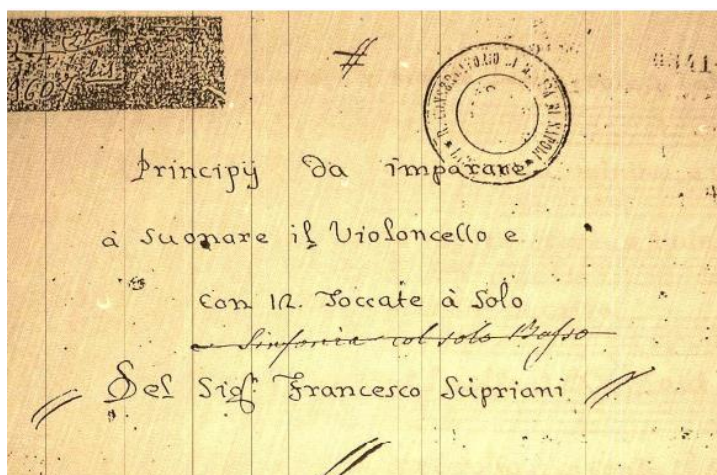 1607 bis
R. CONSERVATORIO DI MUSICA DI NAPOLI
Principij da imparare
à suonare il Violoncello e
con 12. Toccate à solo
Sinfonia col solo Basso
Del Sig.r Francesco Scipriani